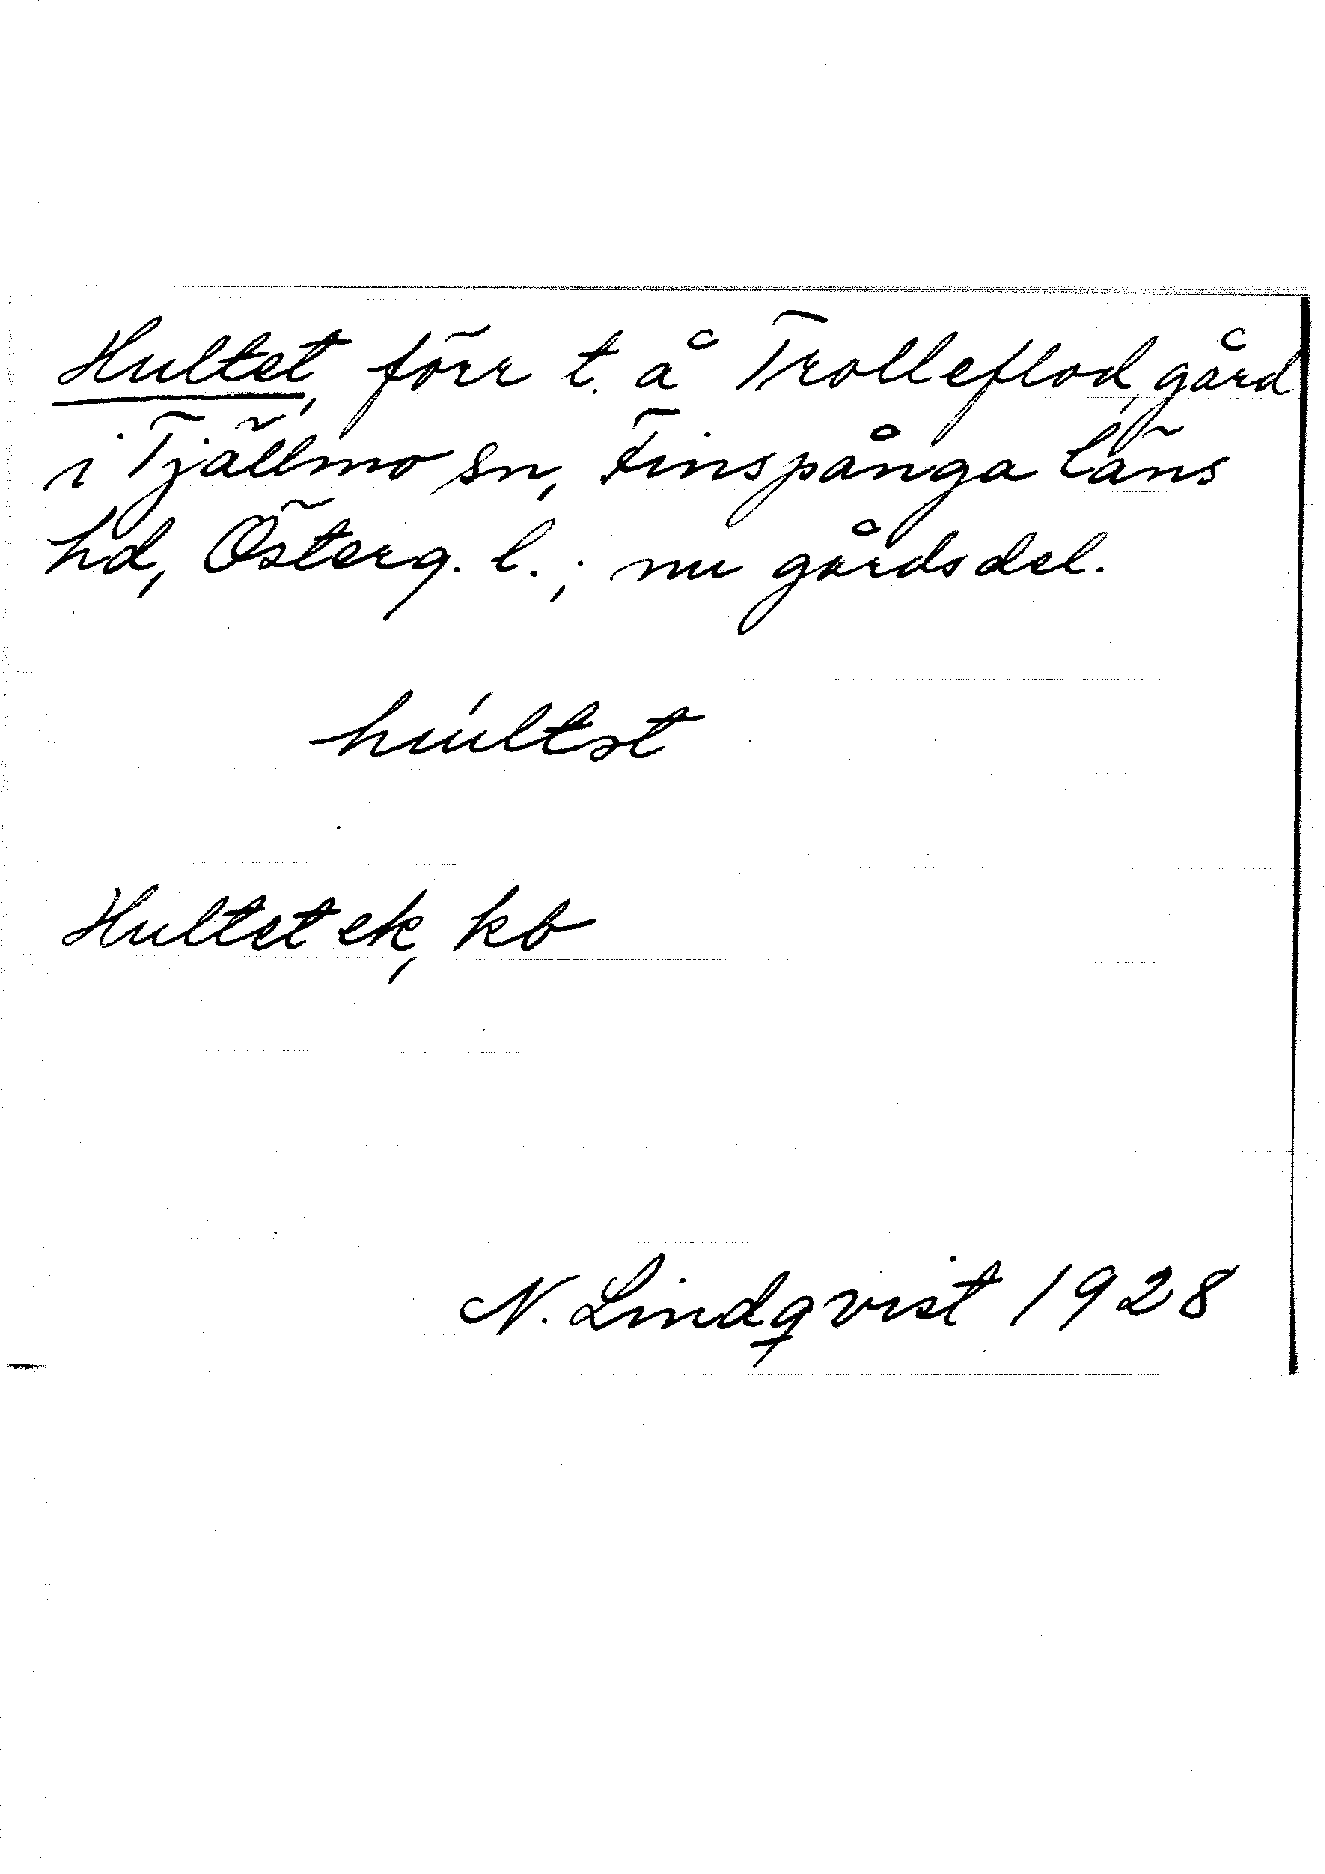 Hultet, förr t. å Trolleflod, gård
i Tjällmo sn, Finspånga läns
hd, Österg. l.; nu gårdsdel.
húltət
Hultet ek, kb
N. Lindqvist 1928